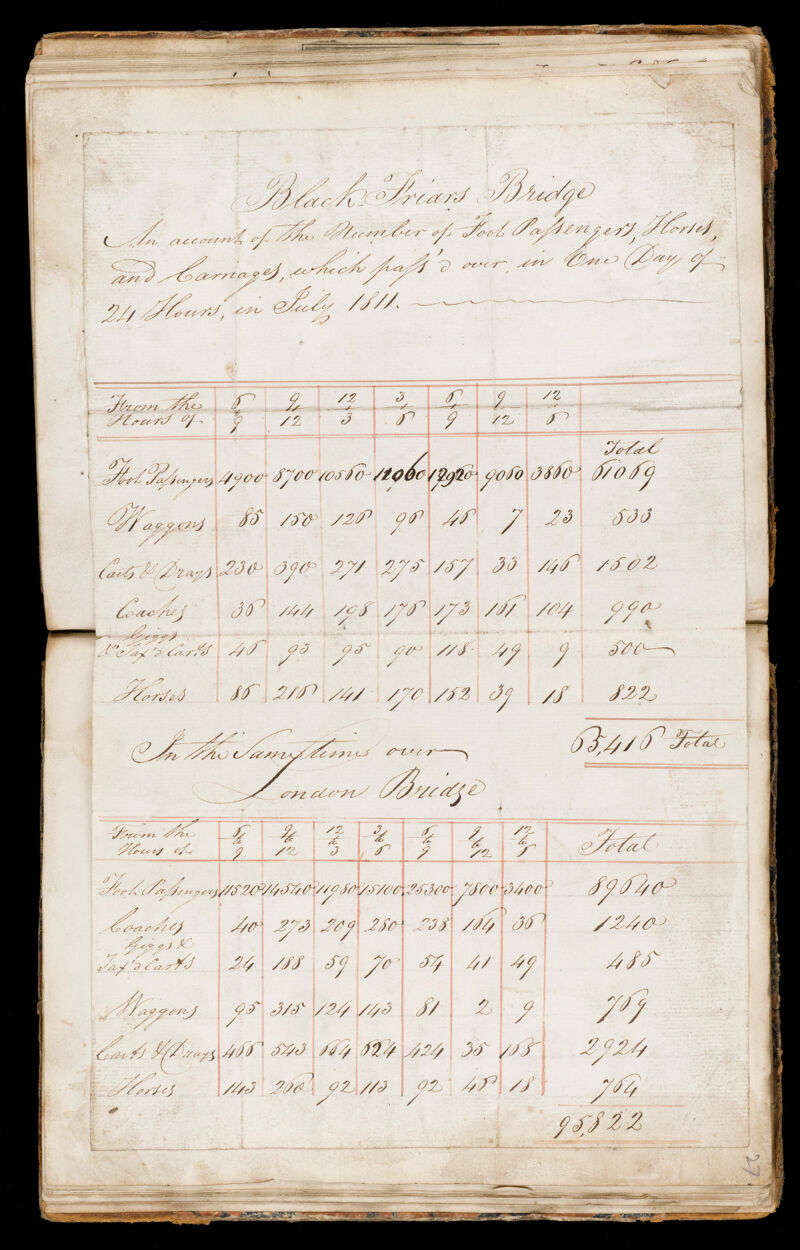 Black Friars Bridge
An account of the Number of Foot Passengers, Horses,
and Carriages, which pass'd over, in One Day of
24 Hours, in July 1811.
From the 6 9 12 3 6 9 12
Hours of 9 12 3 6 9 12 6
Total
Foot Passengers 4900 8700 10560 9060 3860 61069
Waggons 85 150 126 96 46 7 23 533
Carts & Drays 230 390 271 275 157 33 146 1502
Coaches 36 144 198 176 173 161 104 990
Giggs
& Tax'd Carts 46 93 95 90 118 49 9 500
Horses 86 216 141 170 152 39 18 822
65,416 Total
In the Same time over
London Bridge
From the 6 9 12 3 6 9 12 Total
to to to to to to to
Hours of 9 12 3 6 9 12 6
Foot Passengers 11520 14540 11980 15100 25300 7800 3400 89640
Coaches 40 273 209 280 238 164 36 1240
Giggs &
Tax'd Carts 24 188 59 70 54 41 49 485
Waggons 95 315 124 143 81 2 9 769
Carts & Drays 466 543 664 624 424 35 168 2924
Horses 143 260 92 113 92 46 18 764
95,822
27